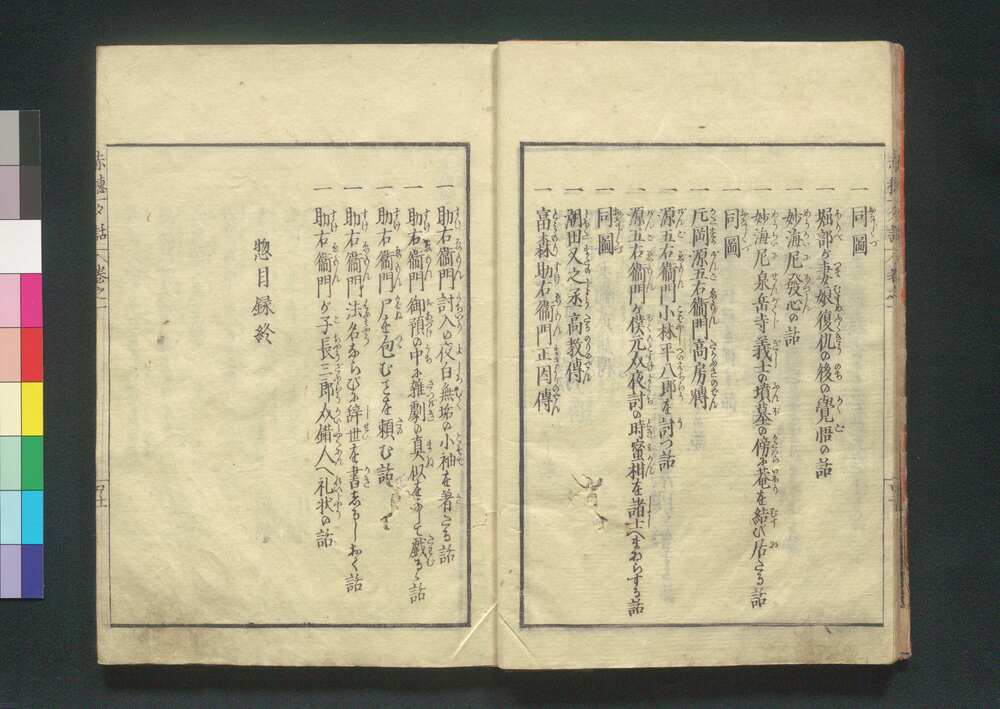 一 同圖
一 堀部が妻娘復仇の後の覺悟の話
一 妙海尼發心の話
一 妙海尼泉岳寺義士の墳墓の傍に菴を結び居たる話
一 同圖
一 片岡源五右衞門高房傳
一 源五右衞門小林平八郎を討つ話
一 源五右衞門が僕元助夜討の時蜜柑を諸士へまゐらする話
一 同圖
一 潮田又之丞高教傳
一 富森助右衞門正因傳
一 助右衞門討入の夜白無垢の小袖を著たる話
一 助右衞門御預の中に雜劇の真似をして戲るゝ話
一 助右衞門尸を包むことを頼む話
一 助右衞門法名ならびに辞世を書しるしおく話
一 助右衞門が子長三郎 備人へ礼状の話
惣目録終